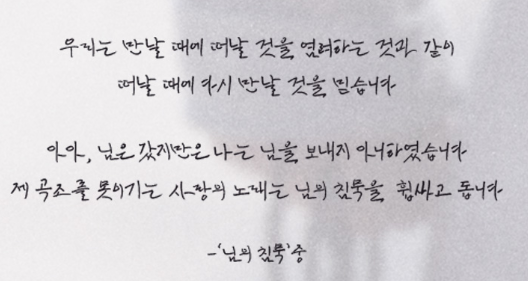 우리는 만날 때에 떠날 것을 염려하는 것과 같이
떠날 때에 다시 만날 것을 믿습니다
아아, 님은 갔지만은 나는 님을 보내지 아니하였습니다
제 곡조를 못이기는 사랑의 노래는 님의 침묵을 휩싸고 돕니다
-'님의 침묵'중